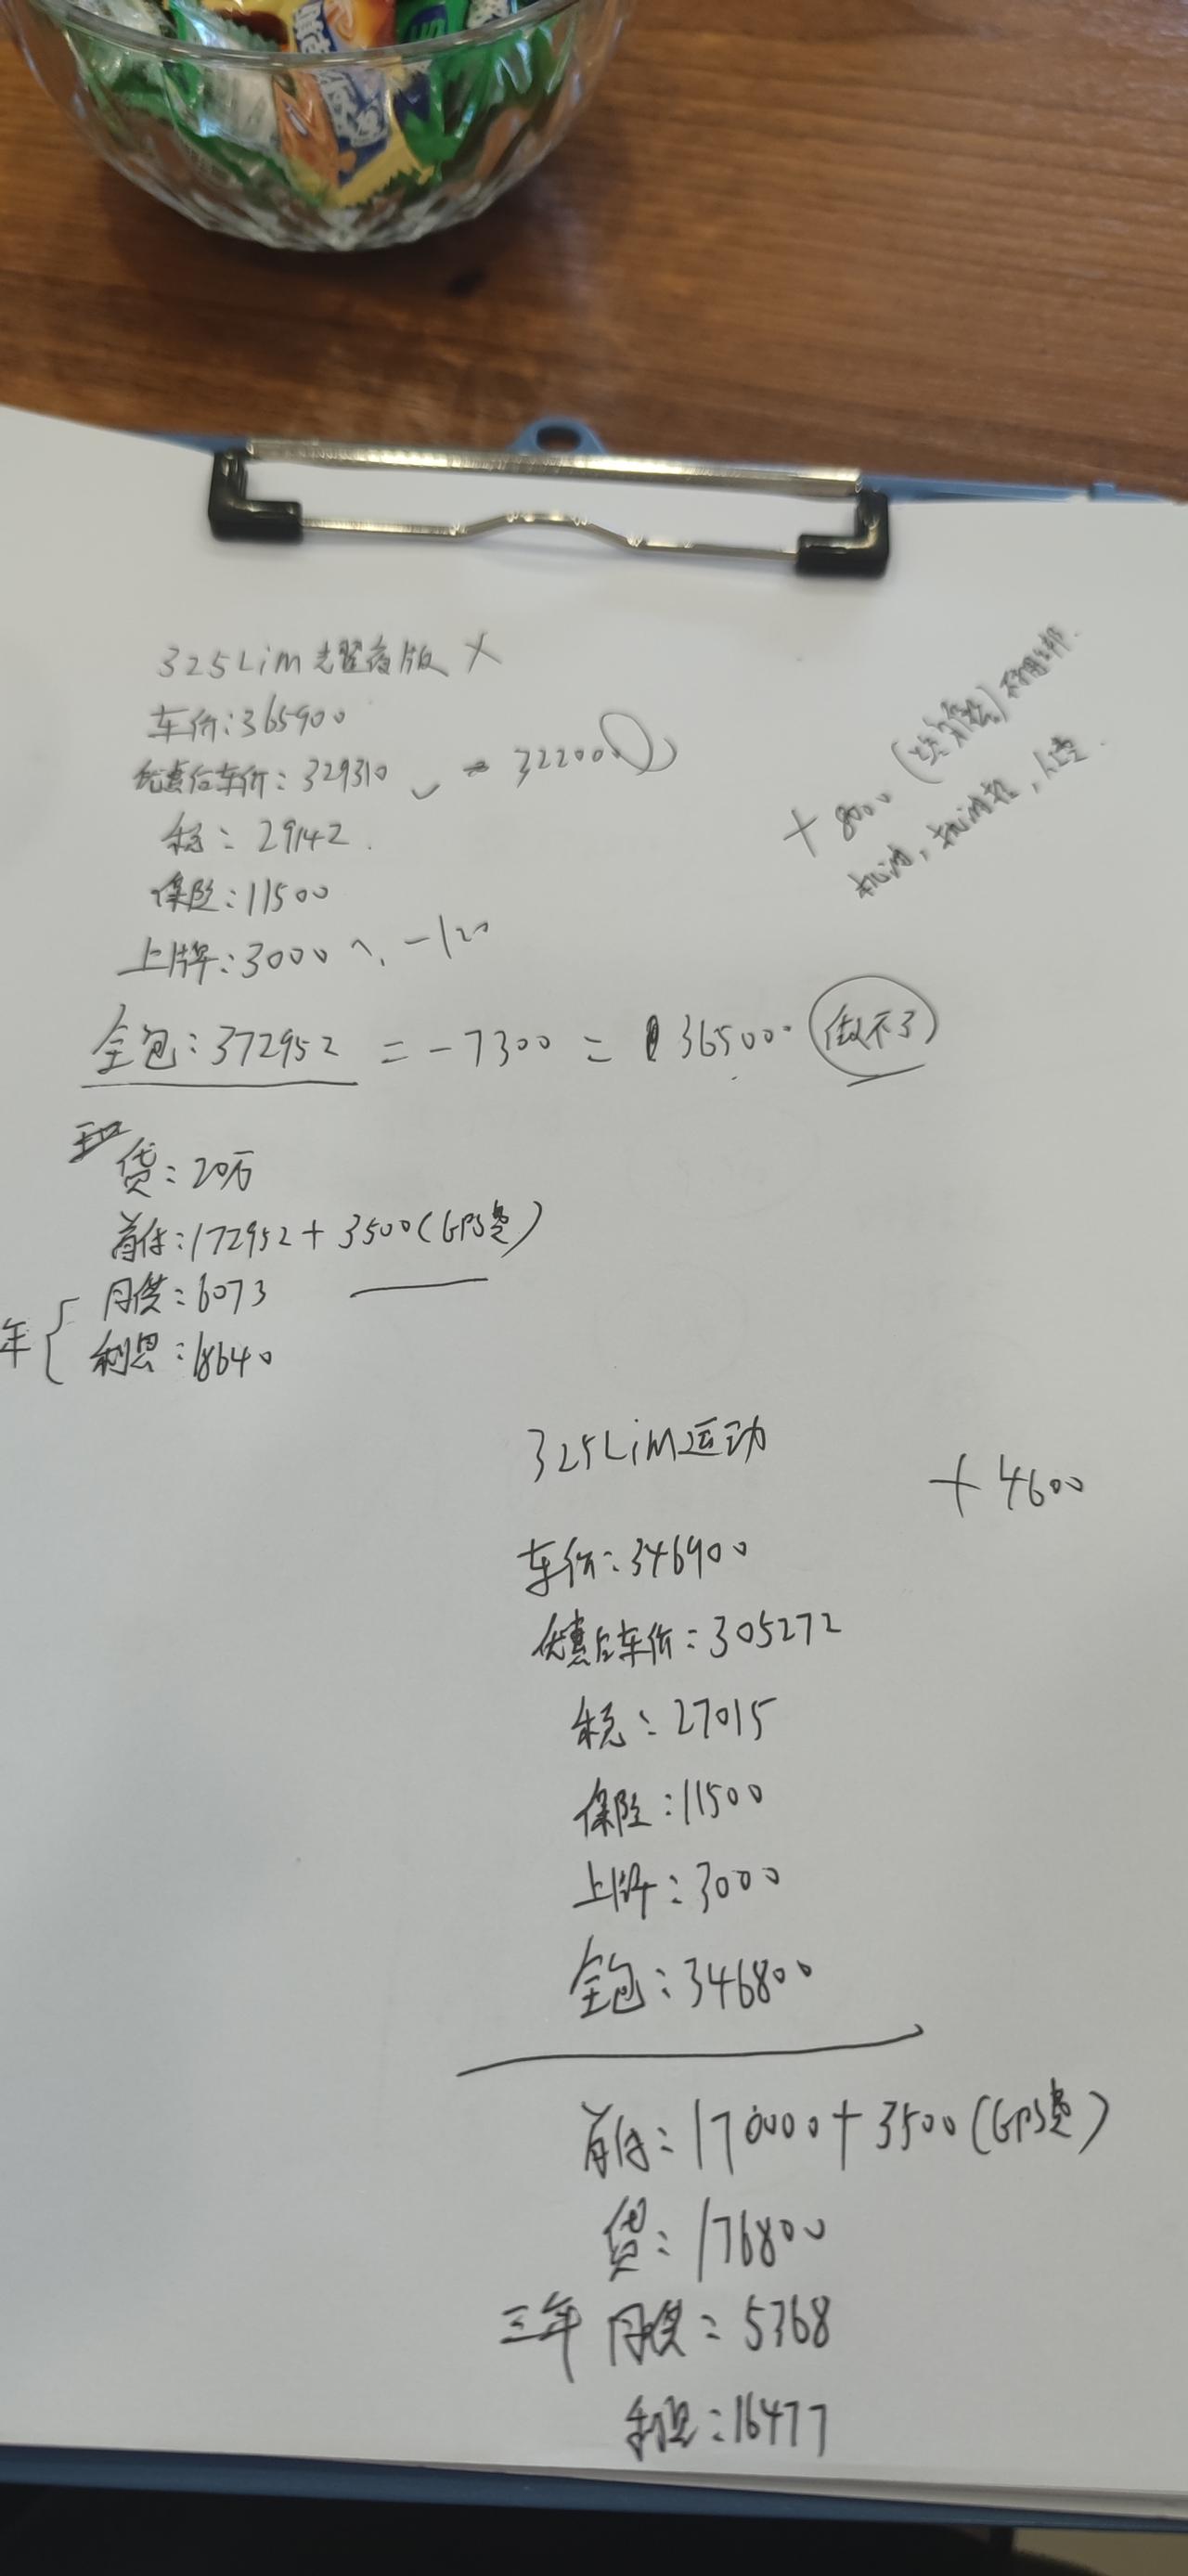 325Lim 曜夜版 X
车价:365900
优惠后车价:329310 322000
税:29142.
保险:11500
上牌:3000 -1200
全包:372952 = -7300 = 365000 做不了
+8000
机油,机油格,人工.
贷:20万
首付:172952+3500(GPS费)
月供:6073
年
利息:18640
325LiM运动
+4600
车价:346900
优惠后车价:305272
税:27015
保险:11500
上牌:3000
全包:346800
首付:170000+3500(GPS费)
贷:176800
三年 月供:5368
利息:16477